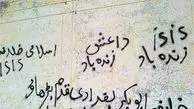 isis داعش اسلامی خلافت
زندہ باد زندہ باد ISIS
ابوبکر بغدادی قدم بڑھاؤ